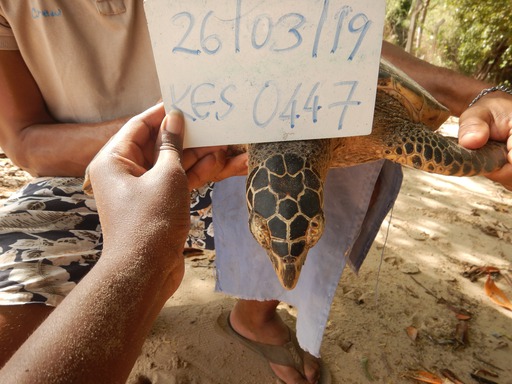 26/03/19
KES 0447